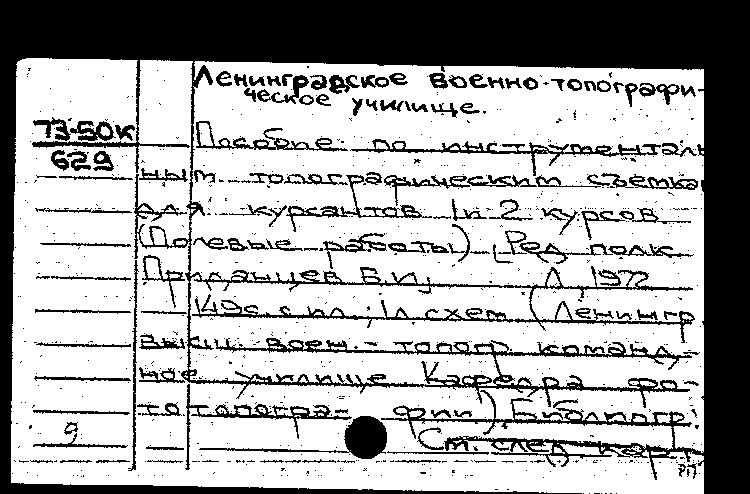 Ленинградское военно-топографи-
ческое училище.
73-50к
629
Пособие по инструменталь
ным топографическим съемка
для курсантов 1 и 2 курсов
(Полевые работы) [Ред полк
Приданцев В.И] Л, 1972
149с. с ил.; 1л. схем (Ленингр
высш. воен.-топогр. команд-
ное училище Кафедра фо-
тотопогра- фии). Библиогр:
9
См. след кар